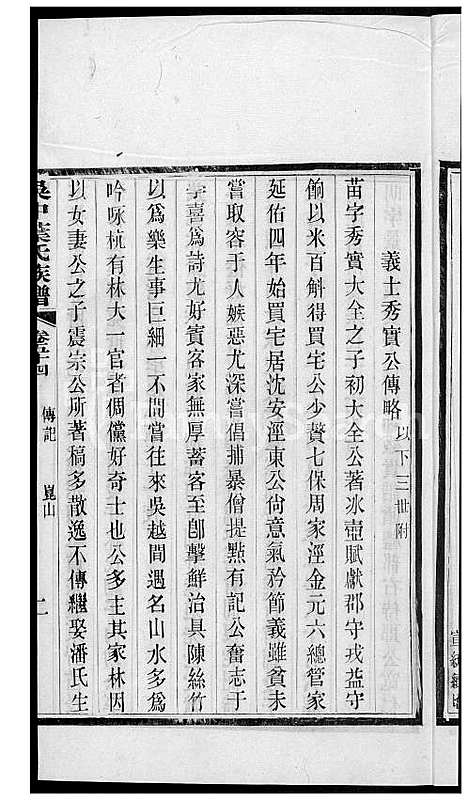 義士秀實公傳略 以下三世附
苗字秀實大全之子初大全公著冰壺賦獻郡守戎益守
餉以米百斛得買宅公少贅七保周家涇金元六總管家
延佑四年始買宅居沈安涇東公尙意氣矜節義雖貧未
嘗取容于人嫉惡尤深嘗倡捕暴僧提點有記公奮志于
學喜爲詩尤好賓客家無厚蓄客至卽擊鮮治具陳絲竹
以爲樂生事巨細一不問嘗往來吳越間遇名山水多爲
吟咏杭有林大一官者倜儻好奇士也公多主其家林因
以女妻公之子震宗公所著稿多散逸不傳繼娶潘氏生
吳中葉氏族譜 卷五十四 傳記 崑山